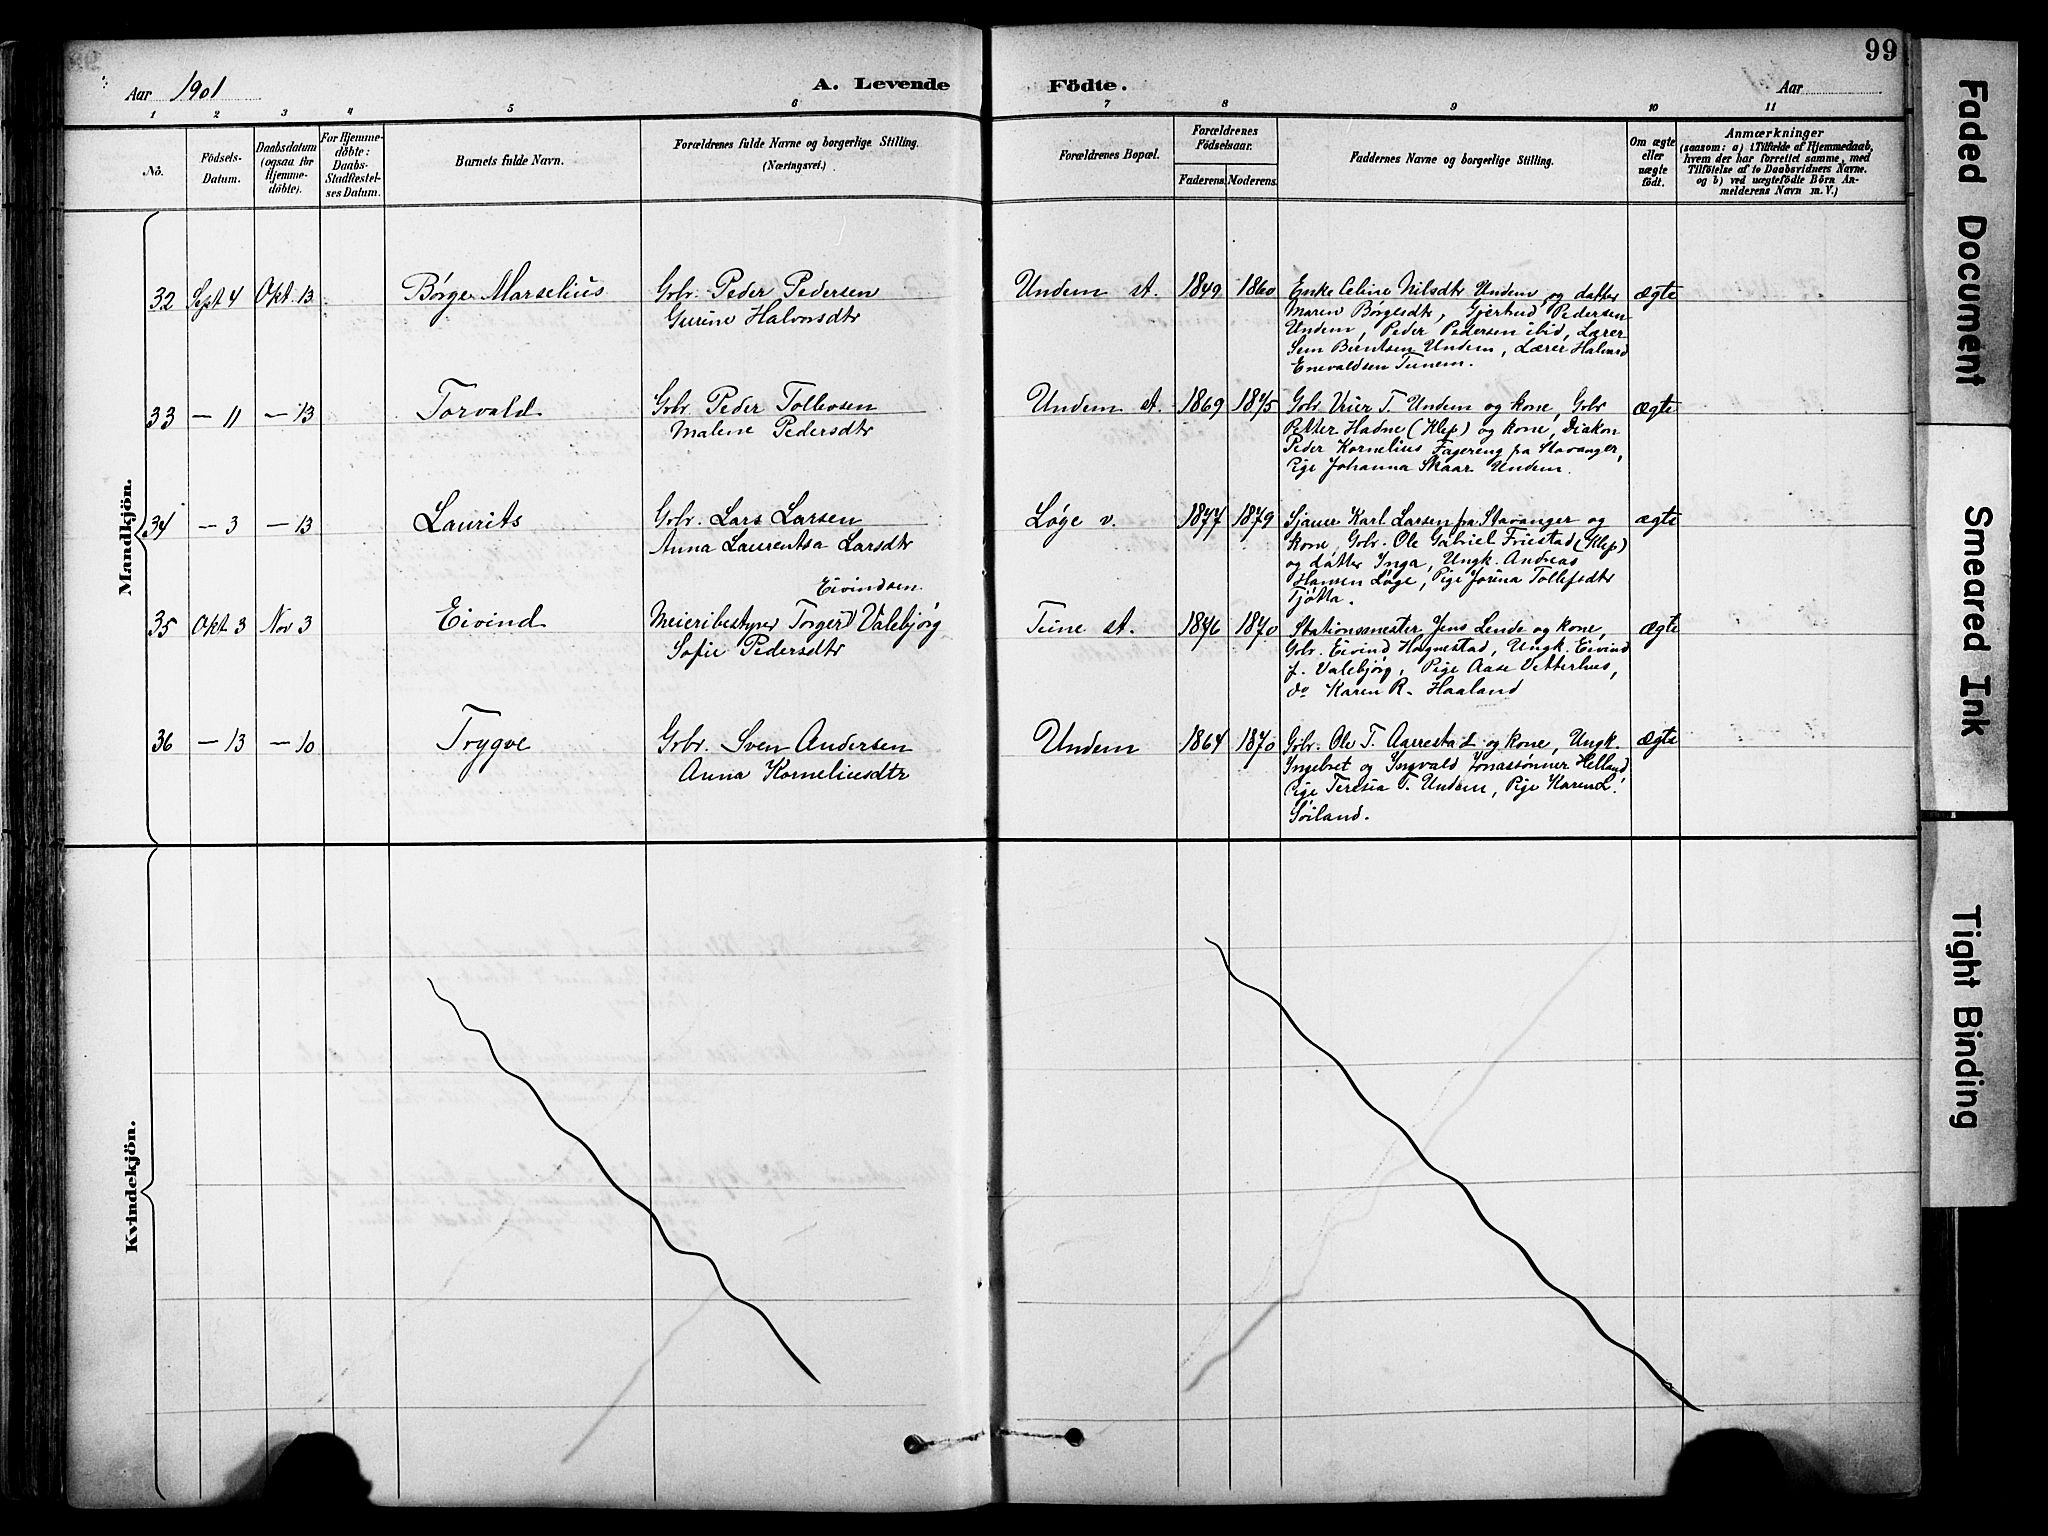 99
Aar 1901
A. Levende
Födte.
Aar
1 2 3 4 5 6 7 8 9 10 11
No.
Födsels-
Datum.
Daabsdatum
(ogsaa for
Hjemme-
döbte).
For Hjemme-
döbte:
Daabs-
Stadfæstel-
ses Datum.
Barnets fulde Navn.
Forældrenes fulde Navne og borgerlige Stilling.
(Næringsvei.)
Forældrenes Bopæl.
Forældrenes
Födselsaar.
Faderens. Moderens.
Faddernes Navne og borgerlige Stilling.
Om ægte
eller
uægte
födt.
Anmærkninger
(saasom: a) i Tilfælde af Hjemmedaab,
hvem der har forrettet samme, med
Tilföielse af to Daabsvidners Navne.
og b) ved uægtefödte Börn An-
melderens Navn m. V.)
Mandkjön.
32 Sept 4 Okt. 13 Børge Marselius Gbr. Peder Pedersen Undem st. 1849 1860 Enke Celine Nilsdtr Undem og datter ægte
Gurine Halvorsdtr Maren Børgesdtr, Gjertrud Pedersen
Undem, Peder Pedersen ibid, Lærer
Sem Berntsen Undem, Lærer Halvard
Enevaldsen Tunem.
33 — 11 — 13 Torvald Gbr. Peder Tollevsen Undem st. 1869 1875 Gbr Vrier T. Undem og kone, Gbr ægte
Malene Pedersdtr Petter Hadne (Klep) og kone, Diakon
Peder Kornelius Fagereng fra Stavanger,
Pige Johanna Skaar Undem.
34 — 3 — 13 Laurits Gbr. Lars Larsen Løge v. 1877 1879 Sjauer Karl Larsen fra Stavanger og ægte
Anna Laurentsa Larsdtr kone, Gbr. Ole Gabriel Friestad (Klep)
og datter Inga, Ungk. Andreas
Hansen Løge, Pige Jorina Tollefsdtr
Tjøtta.
Eivindsen
35 Okt 3 Nov 3 Eivind Meieribestyrer Torger Valebjørg Tune st. 1846 1870 Stationsmester Jens Lende og kone, ægte
Sofie Pedersdtr Gbr. Eivind Hognestad, Ungk. Eivind
f. Valebjørg, Pige Aase Vetterhus,
do Karen R. Haaland
36 — 13 — 10 Trygve Gbr. Sven Andersen Undem 1864 1870 Gbr. Ole T. Aarrestad og kone, Ungk. ægte
Anna Korneliusdtr Ingebret og Ingvald Jonassønner Helland
Pige Teresia T. Undem, Pige Karen L.
Søiland.
Kvindekjön.
Faded Document
Smeared Ink
Tight Binding